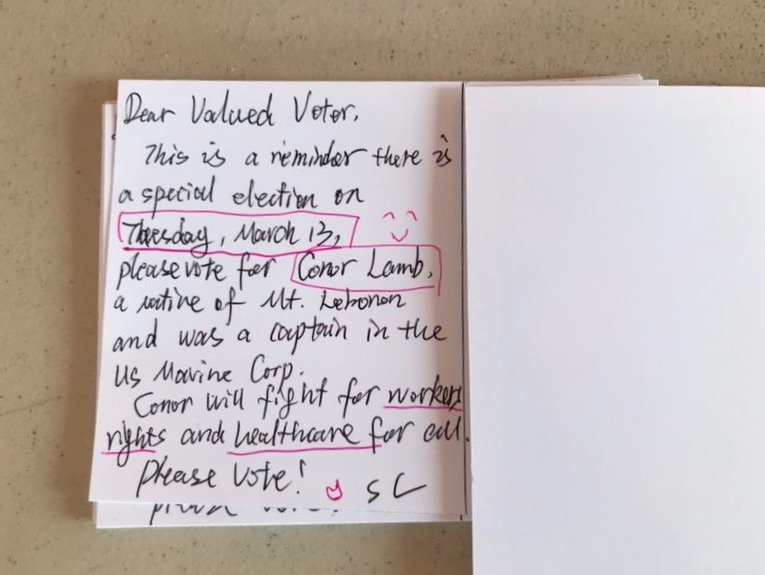 Dear Valued Voter,
This is a reminder there is
a special election on
Tuesday, March 13,
please vote for Conor Lamb,
a native of Mt. Lebonon
and was a captain in the
US Marine Corp.
Conor will fight for workers
rights and healthcare for all.
Please Vote! SC
please vote!